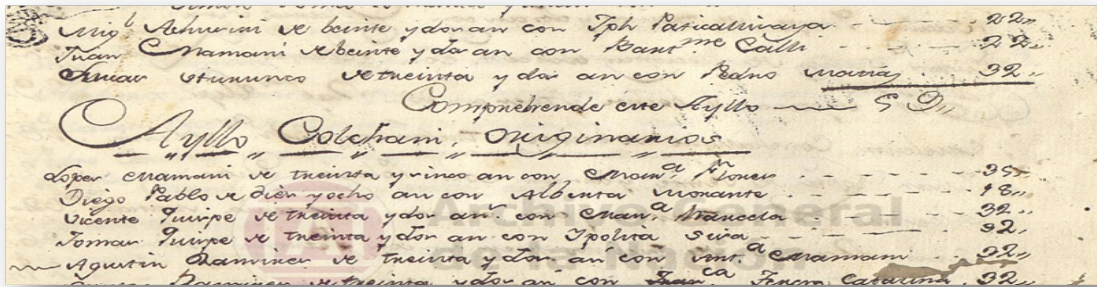 Mig.l de beinte y dos an con Jph 22,,
Juan Mamani de beinte y dos an con Bart.me Calli - - - 22,,
de treinta y dos an con Pedro Matias 32,,
Comprehende este Ayllo
Ayllo Colchani, Originarios
Lopes Mamani de treinta y sinco an con Flores - - - 35,,
Diego Pablo de dies y ocho an con Albinta Morante - - - 18,,
Vicente Quispe de treinta y dos an. con Man.a Marcela - - - 32,,
Tomas Quispe de treinta y dos an con Ipolita Sisa - - - 32,,
Agustin Ramires de treinta y dos an con Mamani 32,,
Ramires de treinta y dos an con Catarina 32,,
Archivo General
de la Nación